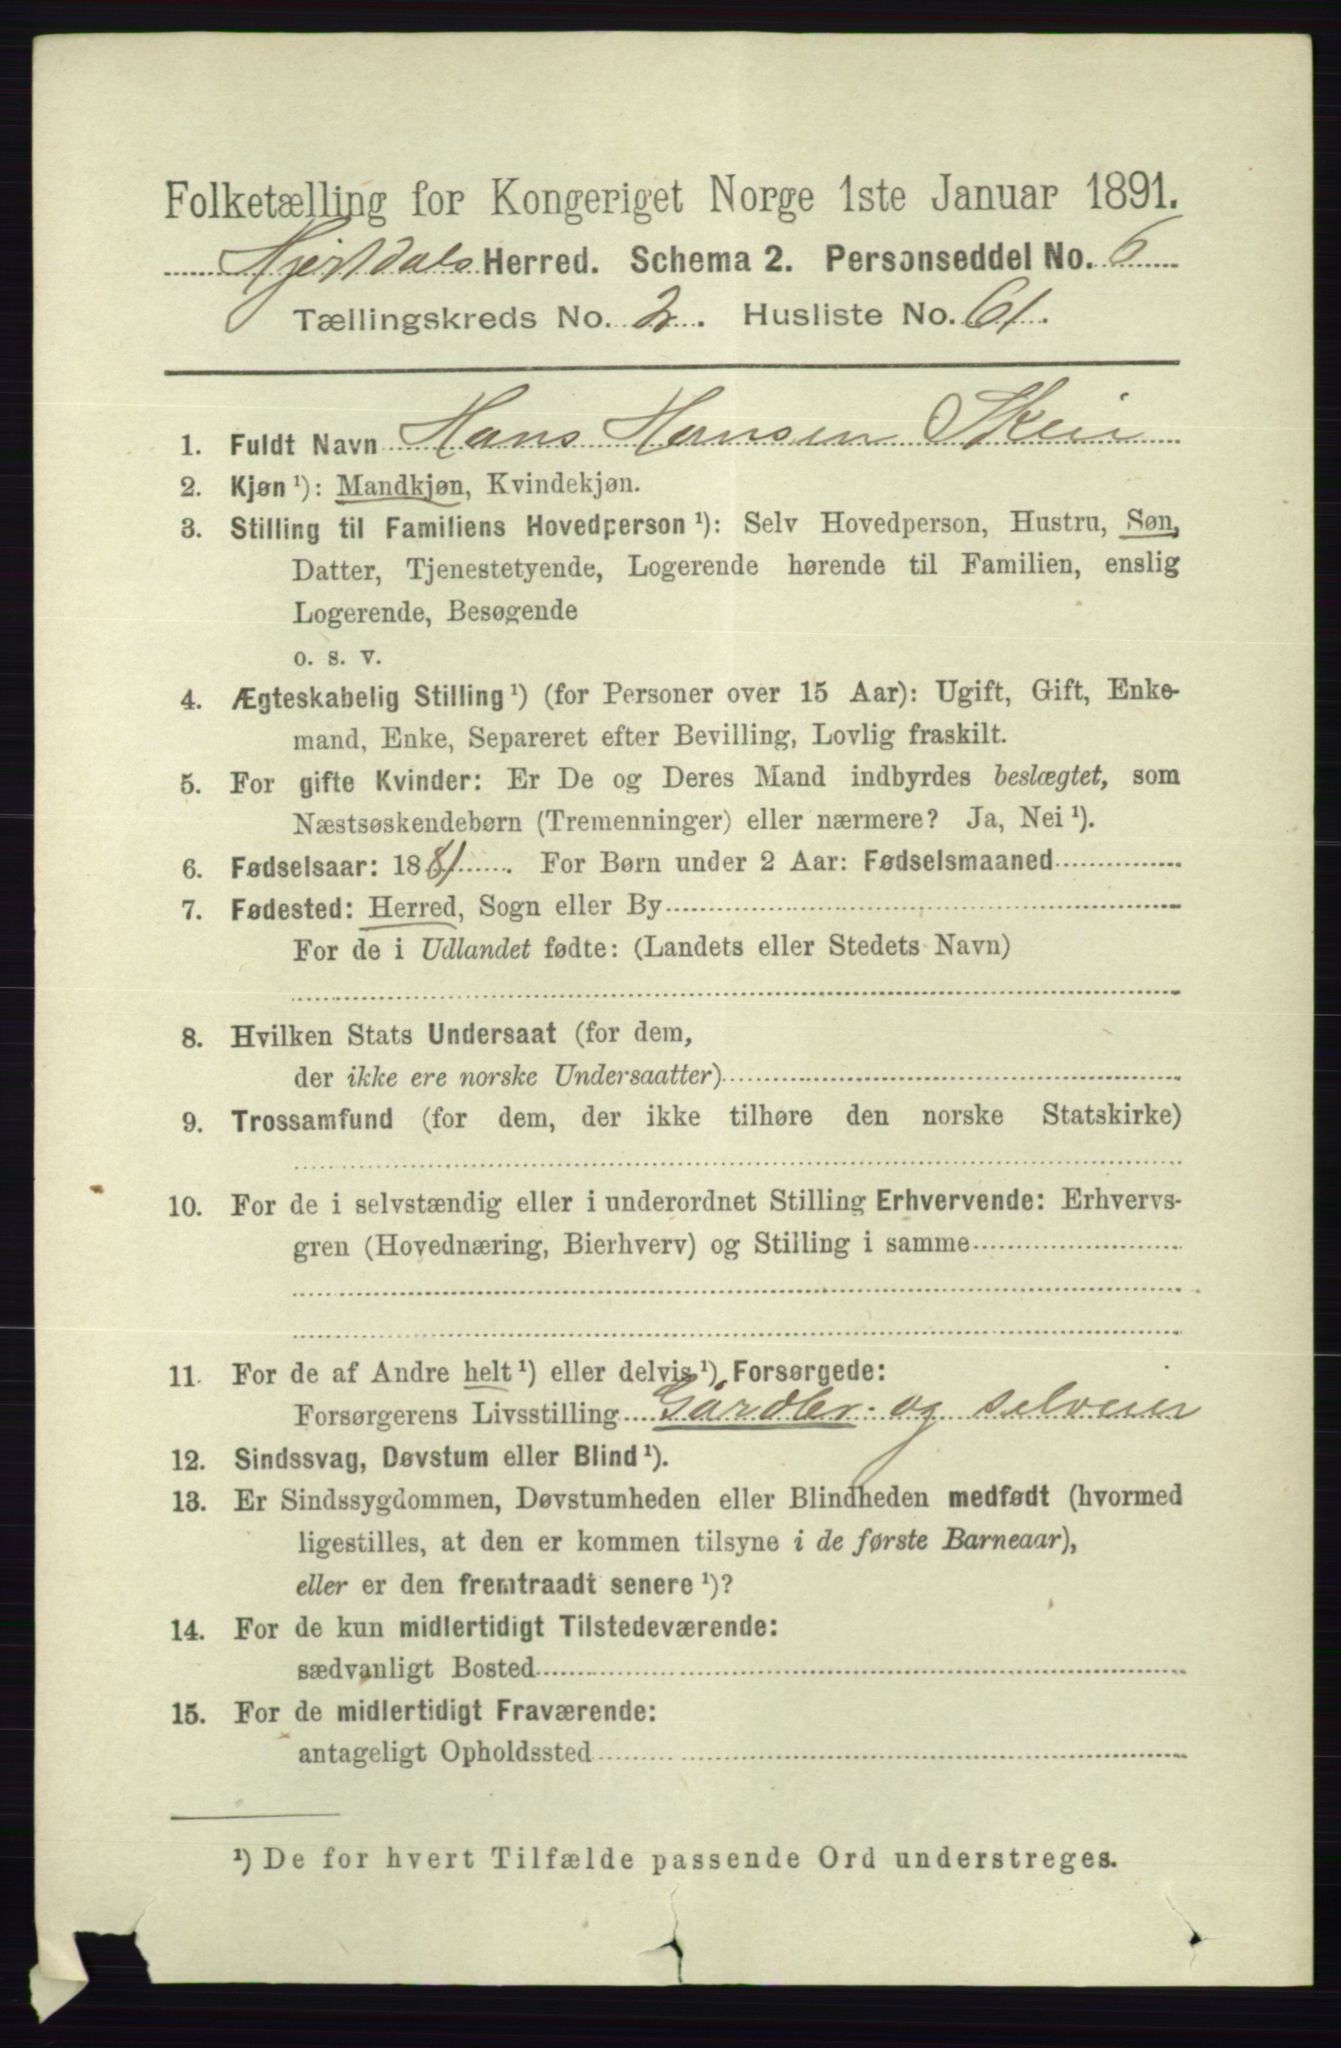 Folketælling for Kongeriget Norge 1ste Januar 1891.
Hjertdals Herred. Schema 2. Personseddel No. 6
Tællingskreds No. 2. Husliste No. 61.
1. Fuldt Navn Hans Hansen Skeie
2. Kjøn ¹): Mandkjøn, Kvindekjøn.
3. Stilling til Familiens Hovedperson ¹): Selv Hovedperson, Hustru, Søn,
Datter, Tjenestetyende, Logerende hørende til Familien, enslig
Logerende, Besøgende
o. s. v.
4. Ægteskabelig Stilling ¹) (for Personer over 15 Aar): Ugift, Gift, Enke-
mand, Enke, Separeret efter Bevilling, Lovlig fraskilt.
5. For gifte Kvinder: Er De og Deres Mand indbyrdes beslægtet, som
Næstsøskendebørn (Tremenninger) eller nærmere? Ja, Nei ¹).
6. Fødselsaar: 1881. For Børn under 2 Aar: Fødselsmaaned
7. Fødested: Herred, Sogn eller By
For de i Udlandet fødte: (Landets eller Stedets Navn)
8. Hvilken Stats Undersaat (for dem,
der ikke ere norske Undersaatter)
9. Trossamfund (for dem, der ikke tilhøre den norske Statskirke)
10. For de i selvstændig eller i underordnet Stilling Erhvervende: Erhvervs-
gren (Hovednæring, Bierhverv) og Stilling i samme
11. For de af Andre helt ¹) eller delvis ¹) Forsørgede:
Forsørgerens Livsstilling Gårdbr. og selveier
12. Sindssvag, Døvstum eller Blind ¹).
13. Er Sindssygdommen, Døvstumheden eller Blindheden medfødt (hvormed
ligestilles, at den er kommen tilsyne i de første Barneaar),
eller er den fremtraadt senere ¹)?
14. For de kun midlertidigt Tilstedeværende:
sædvanligt Bosted
15. For de midlertidigt Fraværende:
antageligt Opholdssted
¹) De for hvert Tilfælde passende Ord understreges.